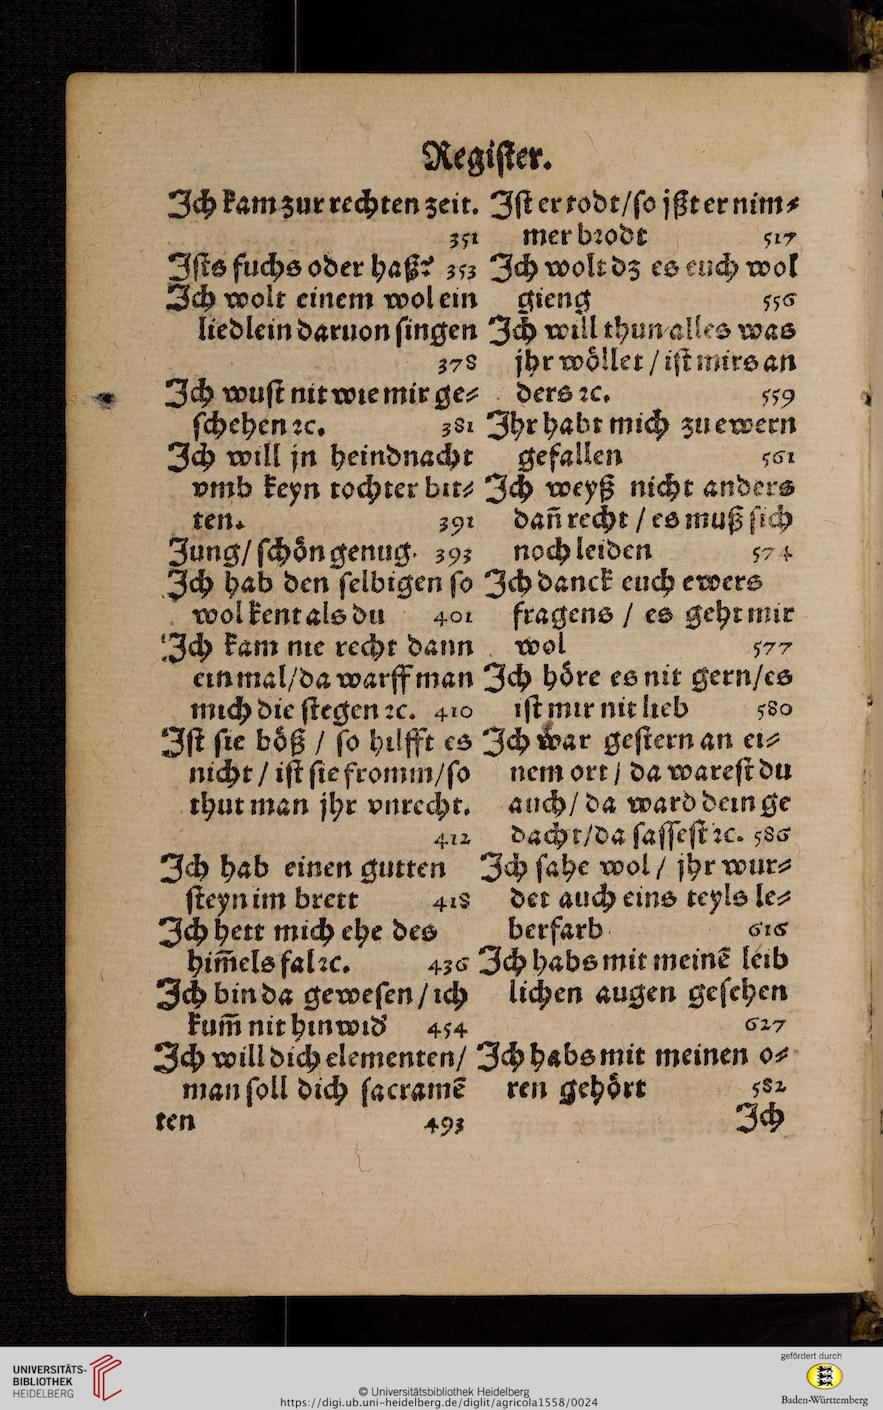 Register.
Ich kam zur rechten zeit.
351
Ists fuchs oder haß? 353
Ich wolt einem wol ein
liedlein daruon singen
378
Ich wust nit wie mir ge⸗
schehen ⁊c. 381
Ich will jn heindnacht
vmb keyn tochter bit⸗
ten. 391
Jung/ schön genug. 393
Ich hab den selbigen so
wol kent als du 401
Ich kam nie recht dann
ein mal/da warff man
mich die stegen ⁊c. 410
Ist sie böß / so hilfft es
nicht / ist sie fromm/so
thut man jhr vnrecht.
412
Ich hab einen gutten
steyn im brett 418
Ich hett mich ehe des
him̃els fal ⁊c. 436
Ich bin da gewesen / ich
kum̃ nit hin wid' 454
Ich will dich elementen/
man soll dich sacramẽ
ten 493
Ist er todt/so jßt er nim⸗
mer brodt 517
Ich wolt dz es euch wol
gieng 556
Ich will thun alles was
jhr wöllet / ist mirs an
ders ⁊c. 559
Ihr habt mich zu ewern
gefallen 561
Ich weyß nicht anders
dañ recht / es muß sich
noch leiden 574
Ich danck euch ewers
fragens / es geht mir
wol 577
Ich höre es nit gern/es
ist mir nit lieb 580
Ich war gestern an ei⸗
nem ort / da warest du
auch/ da ward dein ge
dacht/da sassest ⁊c. 586
Ich sahe wol / jhr wur⸗
det auch eins teyls le⸗
berfarb 616
Ich habs mit meinẽ leib
lichen augen gesehen
627
Ich habs mit meinen o⸗
ren gehört 582
Ich
UNIVERSITÄTS-
BIBLIOTHEK
HEIDELBERG
© Universitätsbibliothek Heidelberg
https://digi.ub.uni-heidelberg.de/diglit/agricola1558/0024
gefördert durch
Baden-Württemberg